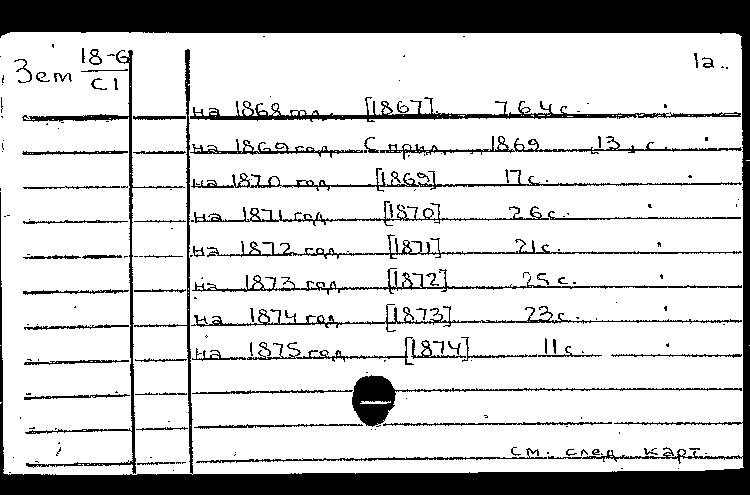 Зем 18-6 1а.
С1
на 1868 год [1867] 7,6,4 с.
на 1869 год. С прил. 1869 13, с.
на 1870 год [1869] 17 с.
на 1871 год [1870] 26 с.
на 1872 год. [1871] 21 с.
на 1873 год. [1872] 25 с.
на 1874 год. [1873] 23 с.
на 1875 год [1874] 11 с.
см. след. карт.